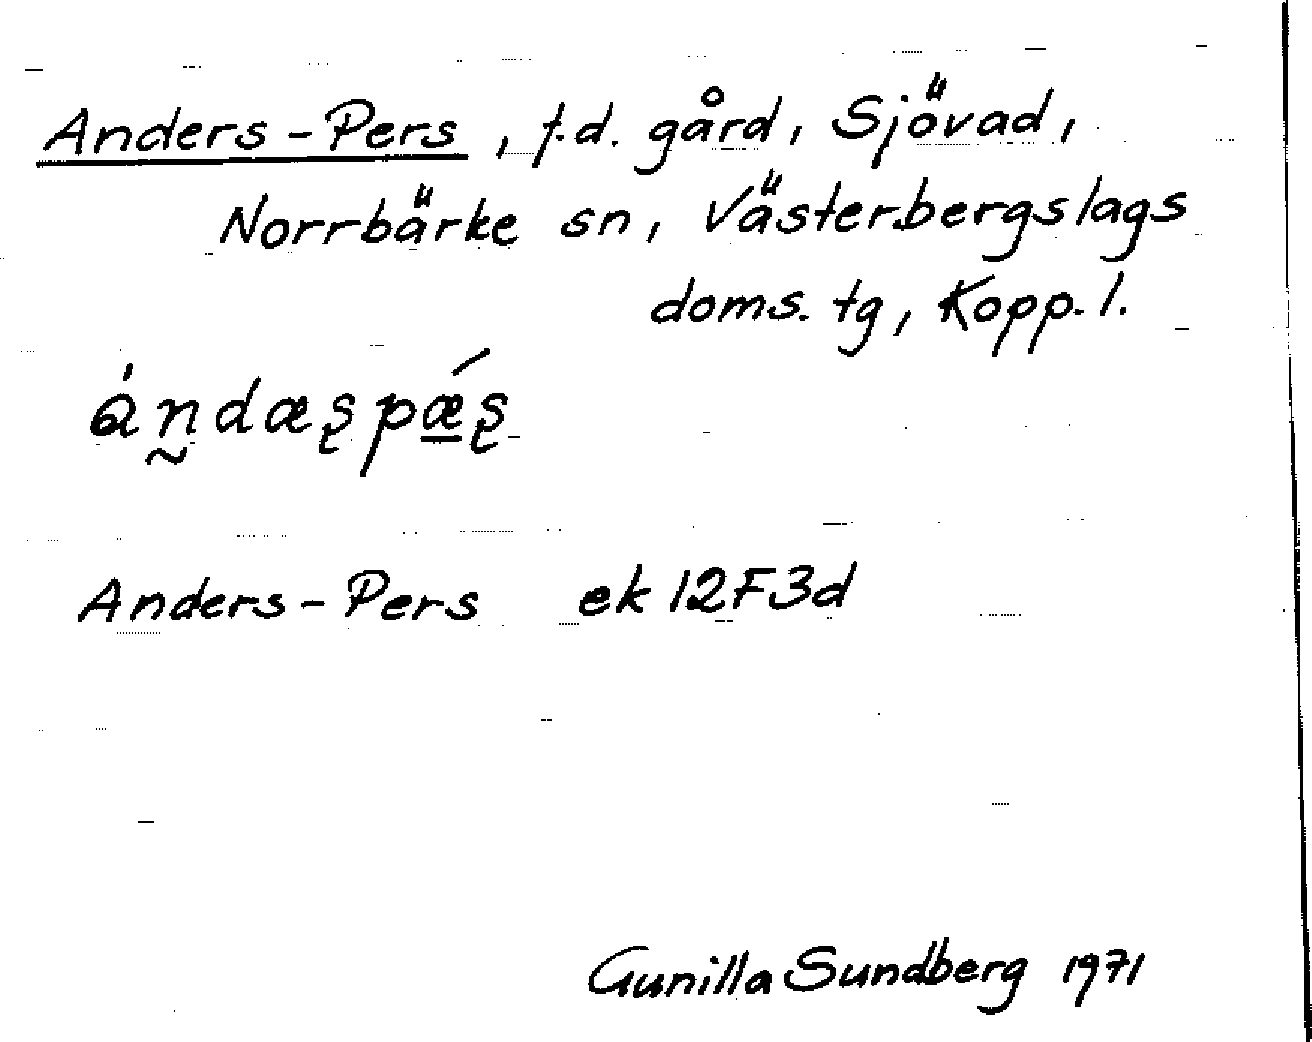 Anders-Pers, f.d. gård, Sjövad,
Norrbärke sn, Västerbergslags
doms. tg, Kopp. l.
Anders-Pers ek 12F3d
Gunilla Sundberg 1971